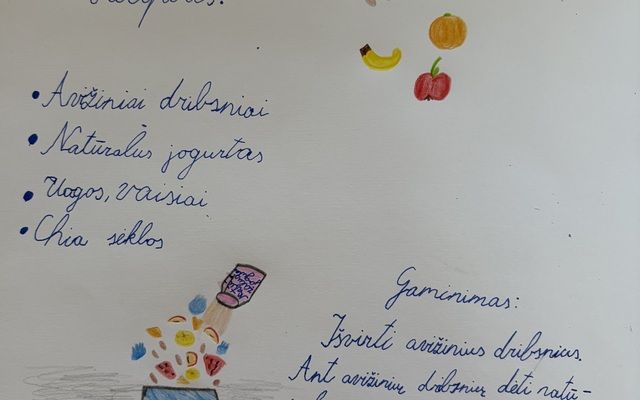 • Avižiniai dribsniai
• Natūralus jogurtas
• Uogos, vaisiai
• Chia sėklos
Gaminimas:
Išvirti avižinius dribsnius.
Ant avižinių dribsnių dėti natū-